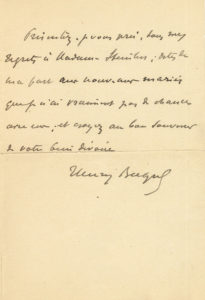 Présentez, je vous prie, tous mes
regrets à Madame
ma part aux nouveaux mariés
que je n'ai vraiment pas de chance
avec eux, et croyez au bon souvenir
de votre bien dévoué
Henry